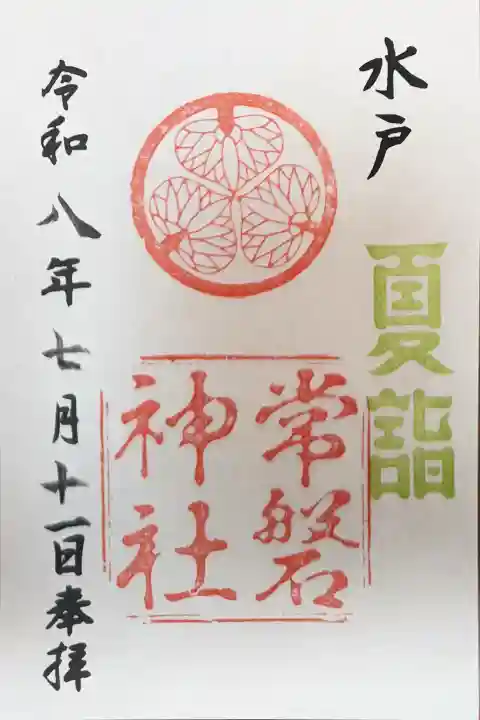 水戸
夏詣
常磐
神社
令和八年七月十一日奉拝